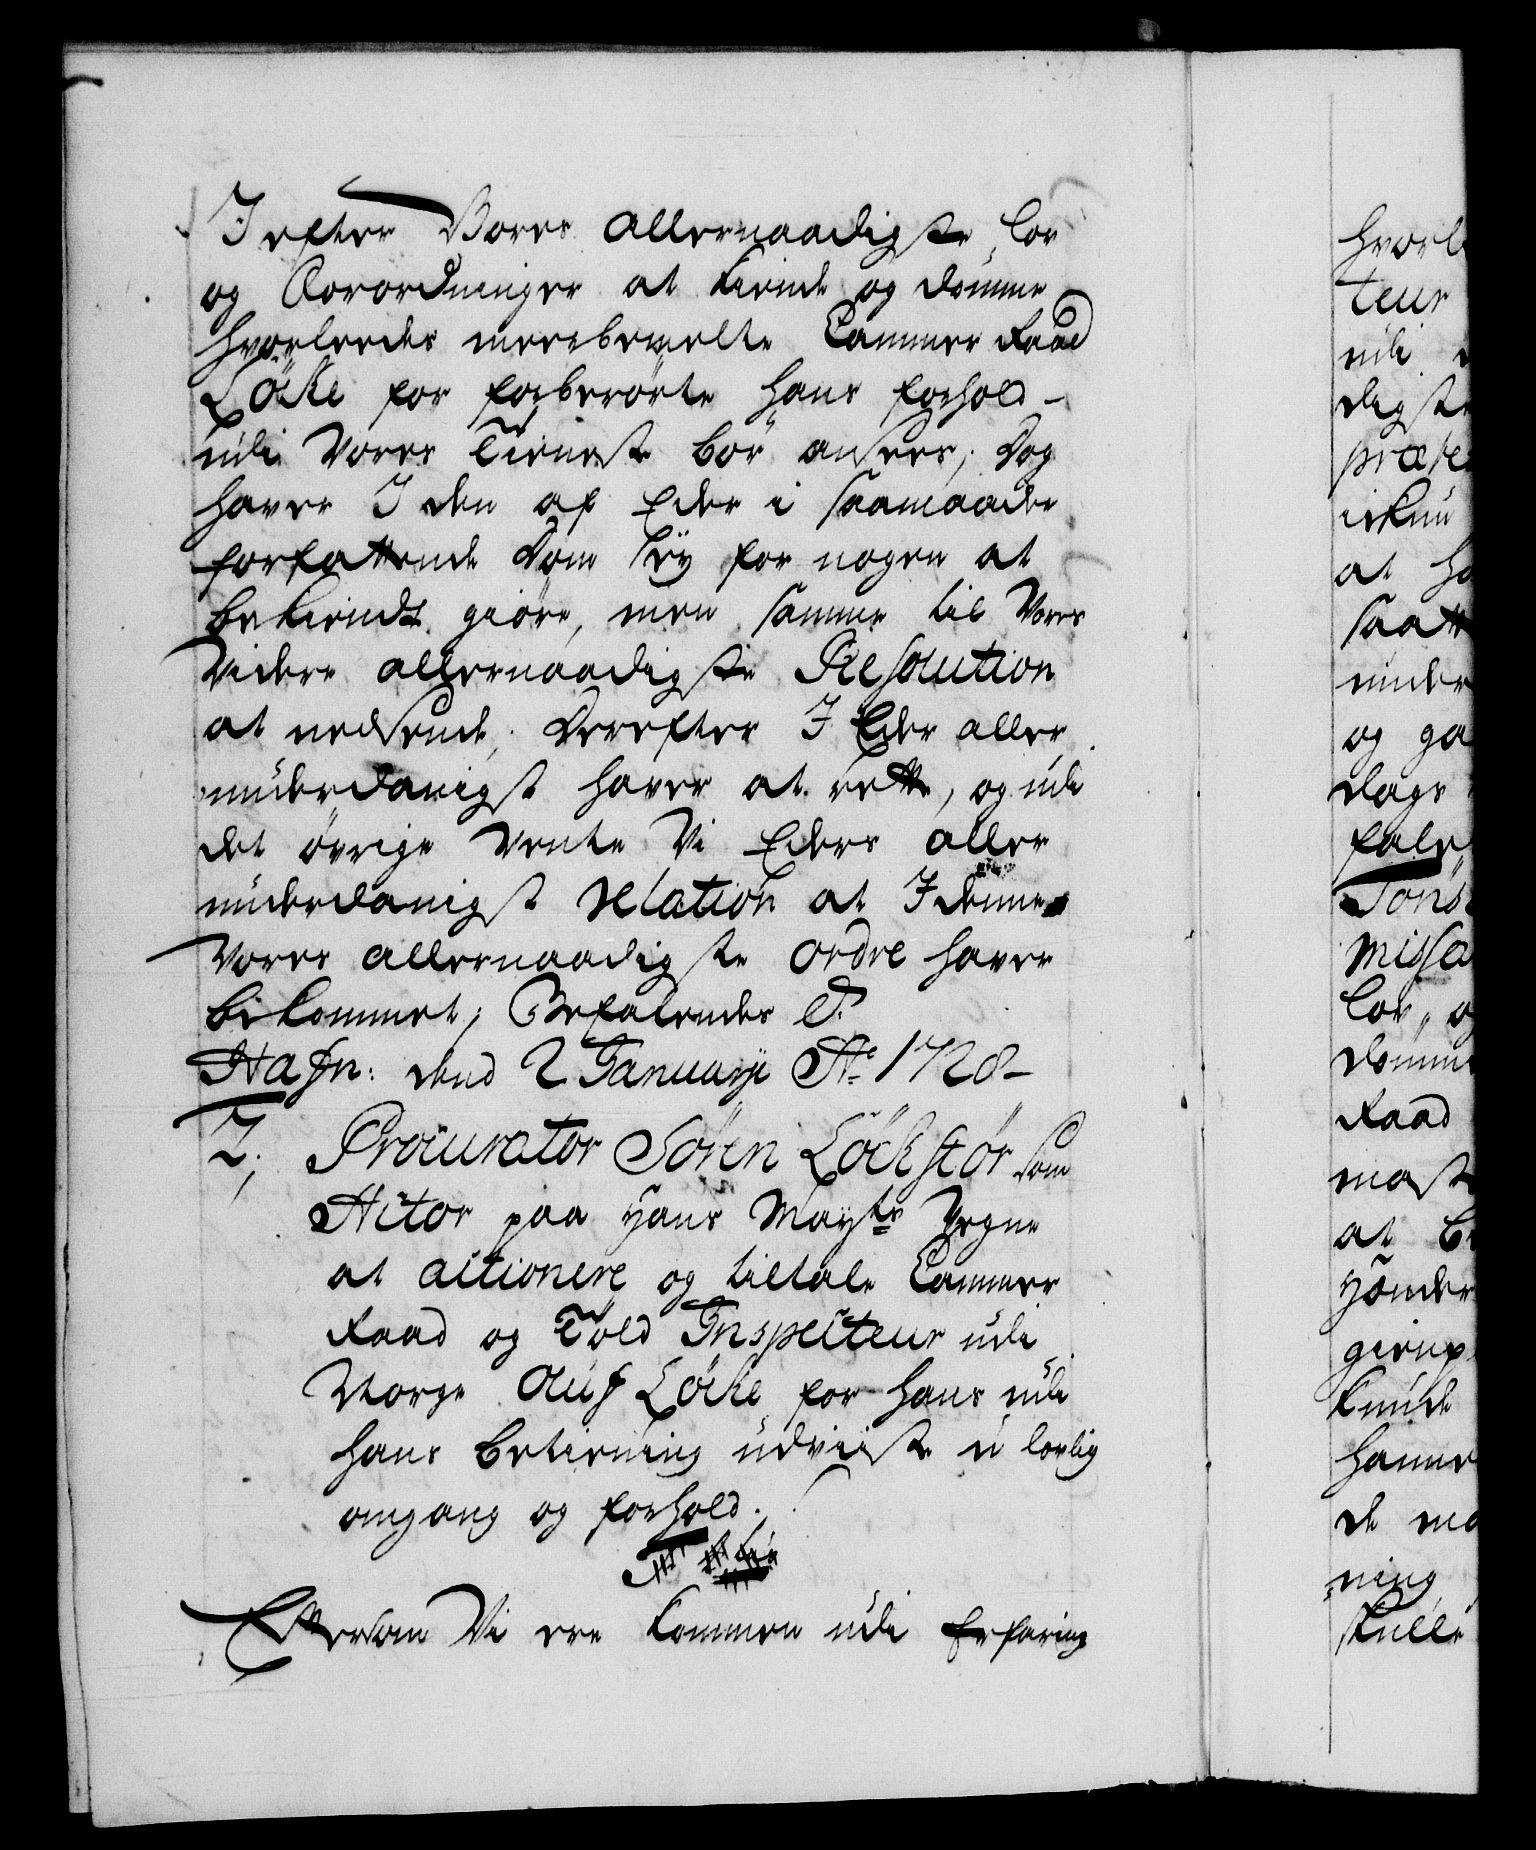 I efter Vores allernaadigste Lov
og Forordninger at kiende og dømme
hvorleedes meerbemelte Cammer Raad
Löcke for forberørte hans forhold
udi Vores Tieneste bør ansees; Dog
haver I den af Eder i saamaader
forfattende Dom Ey for nogen at
bekiendt giöre, men samme til Vores
Videre allernaadigste Resolution
at nedsende; Derefter I Eder aller
underdanigst haver at rette, og udi
det øvrige vente Vi Eders aller
underdanigst relation at I denne
Vores allernaadigste ordre haver
bekommet; Befalendes &.
Hafn: dend 2 Januarij Ao 1728
7, Procurator Sören Löckstör som
Actor paa Hans Mayts Vegne
at actionere og tiltale Cammer
Raad og Told Inspecteur udi
Norge Oluf Löcke for hans udi
hans betiening udviiste u lovlig
omgang og forhold.
Eftersom Vi ere kommen udi Erfaring
hvorl
teur
udi
digste
præte
at ha
saatt
under
og ga
dags
fale
Töns
Missa
Lov, o
dømme
Raad
maste
at be
kunde
hanne
de ma
ning
skulle